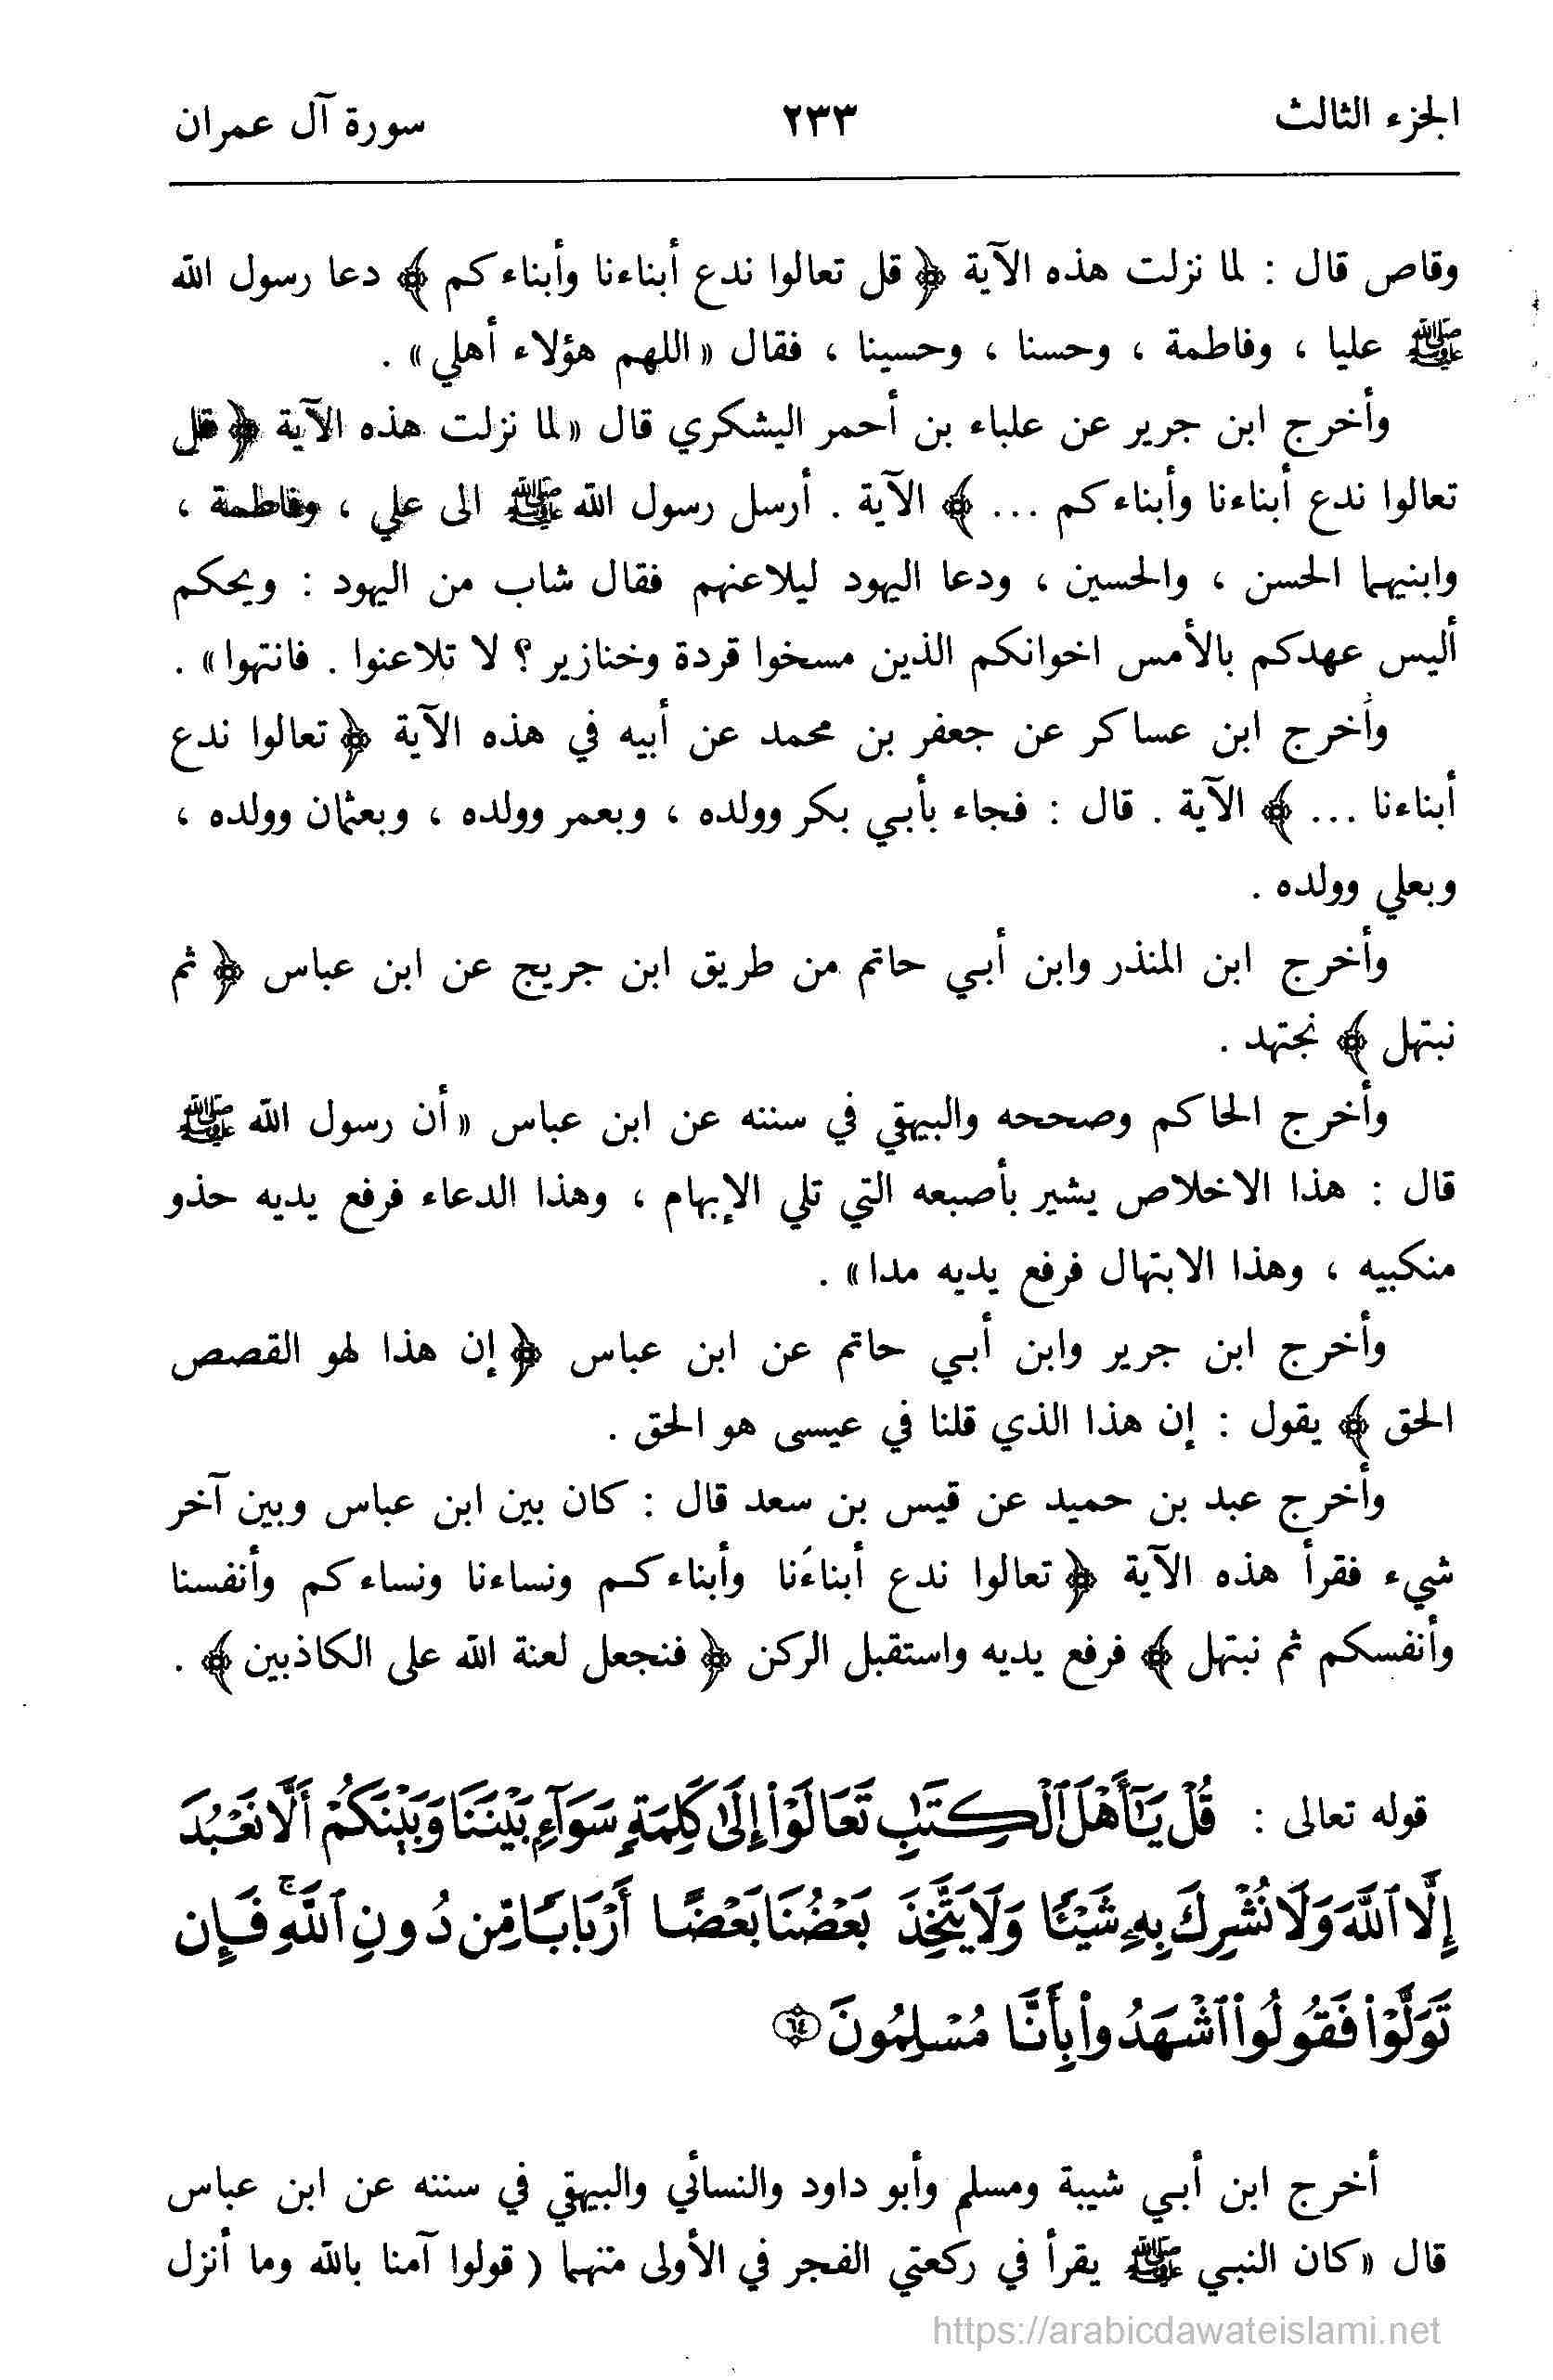 الجزء الثالث ٢٣٣ سورة آل عمران
وقاص قال : لما نزلت هذه الآية ﴿ قل تعالوا ندع أبناءنا وأبناءكم ﴾ دعا رسول الله
ﷺ عليا ، وفاطمة ، وحسنا ، وحسينا ، فقال « اللهم هؤلاء أهلي » .
وأخرج ابن جرير عن علباء بن أحمر اليشكري قال « لما نزلت هذه الآية ﴿ قل
تعالوا ندع أبناءنا وأبناءكم ... ﴾ الآية . أرسل رسول الله ﷺ الى علي ، وفاطمة ،
وابنيهما الحسن ، والحسين ، ودعا اليهود ليلاعنهم فقال شاب من اليهود : ويحكم
أليس عهدكم بالأمس اخوانكم الذين مسخوا قردة وخنازير ؟ لا تلاعنوا . فانتهوا » .
وأخرج ابن عساكر عن جعفر بن محمد عن أبيه في هذه الآية ﴿ تعالوا ندع
أبناءنا ... ﴾ الآية . قال : فجاء بأبي بكر وولده ، وبعمر وولده ، وبعثمان وولده ،
وبعلي وولده .
وأخرج ابن المنذر وابن أبي حاتم من طريق ابن جريج عن ابن عباس ﴿ ثم
نبتهل ﴾ نجتهد .
وأخرج الحاكم وصححه والبيهقي في سننه عن ابن عباس « أن رسول الله ﷺ
قال : هذا الاخلاص يشير بأصبعه التي تلي الإبهام ، وهذا الدعاء فرفع يديه حذو
منكبيه ، وهذا الابتهال فرفع يديه مدا » .
وأخرج ابن جرير وابن أبي حاتم عن ابن عباس ﴿ إن هذا لهو القصص
الحق ﴾ يقول : إن هذا الذي قلنا في عيسى هو الحق .
وأخرج عبد بن حميد عن قيس بن سعد قال : كان بين ابن عباس وبين آخر
شيء فقرأ هذه الآية ﴿ تعالوا ندع أبناءَنا وأبناءكم ونساءنا ونساءكم وأنفسنا
وأنفسكم ثم نبتهل ﴾ فرفع يديه واستقبل الركن ﴿ فنجعل لعنة الله على الكاذبين ﴾ .
قوله تعالى : قُلْ يَٰٓأَهْلَ ٱلْكِتَٰبِ تَعَالَوْا۟ إِلَىٰ كَلِمَةٍ سَوَآءٍۭ بَيْنَنَا وَبَيْنَكُمْ أَلَّا نَعْبُدَ
إِلَّا ٱللَّهَ وَلَا نُشْرِكَ بِهِۦ شَيْـًٔا وَلَا يَتَّخِذَ بَعْضُنَا بَعْضًا أَرْبَابًا مِّن دُونِ ٱللَّهِ ۚ فَإِن
تَوَلَّوْا۟ فَقُولُوا۟ ٱشْهَدُوا۟ بِأَنَّا مُسْلِمُونَ ٦٤
أخرج ابن أبي شيبة ومسلم وأبو داود والنسائي والبيهقي في سننه عن ابن عباس
قال « كان النبي ﷺ يقرأ في ركعتي الفجر في الأولى منهما ( قولوا آمنا بالله وما أنزل
https://arabicdawateislami.net